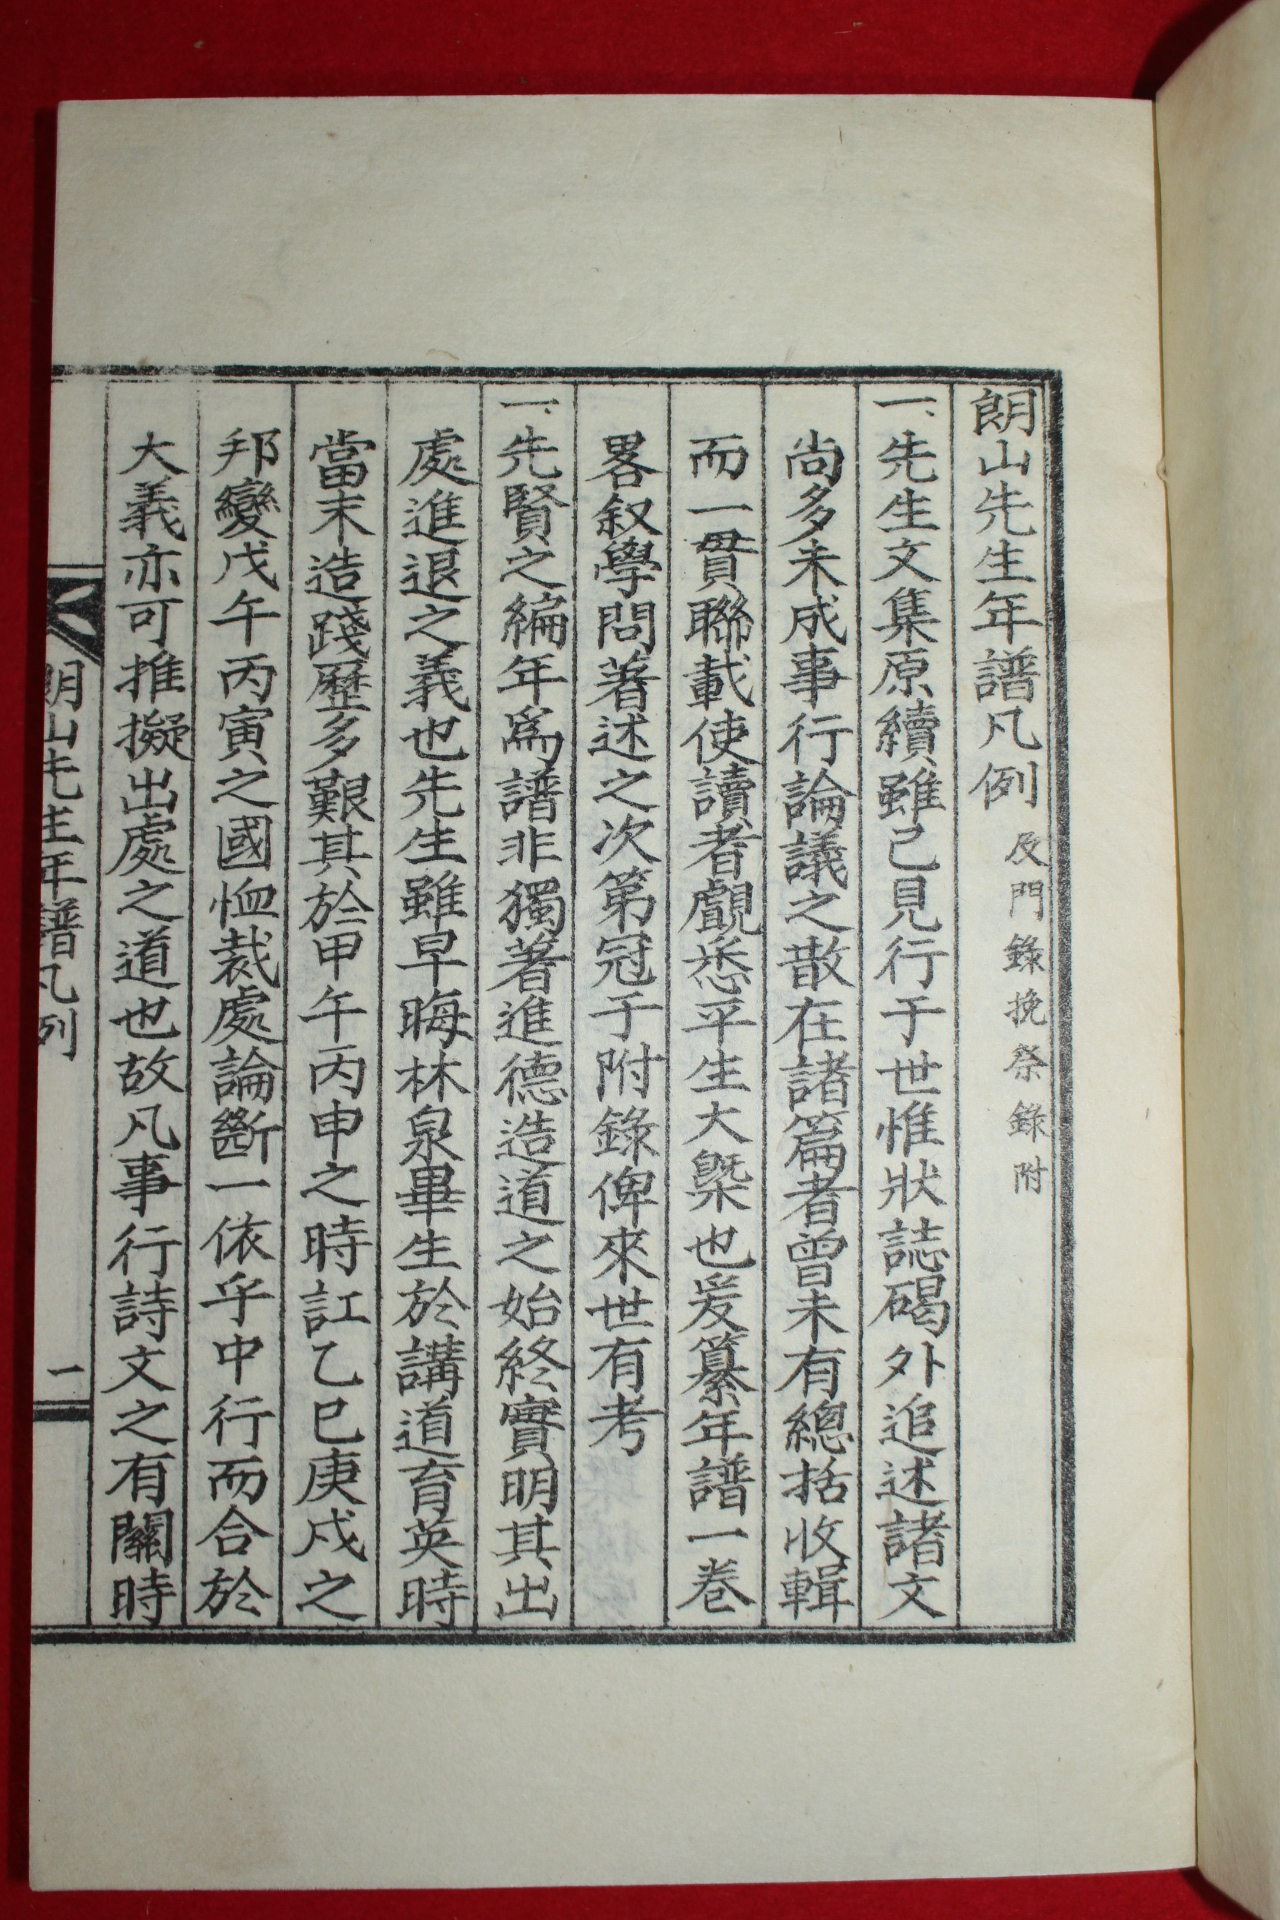 朗山先生年譜凡例 及門錄挽祭錄附
一、先生文集原續雖己見行于世惟狀誌碣外追述諸文
尚多未成事行論議之散在諸篇者曾未有總括收輯
而一貫聯載使讀者覰悉平生大槩也爰纂年譜一卷
畧叙學問著述之次第冠于附錄俾來世有考
一、先賢之編年爲譜非獨著進德造道之始終實明其出
處進退之義也先生雖早晦林泉畢生於講道育英時
當末造踐歷多艱其於甲午丙申之時訌乙巳庚戌之
邦變戊午丙寅之國恤裁處論斷一依乎中行而合於
大義亦可推擬出處之道也故凡事行詩文之有關時
朗山先生年譜凡例
一